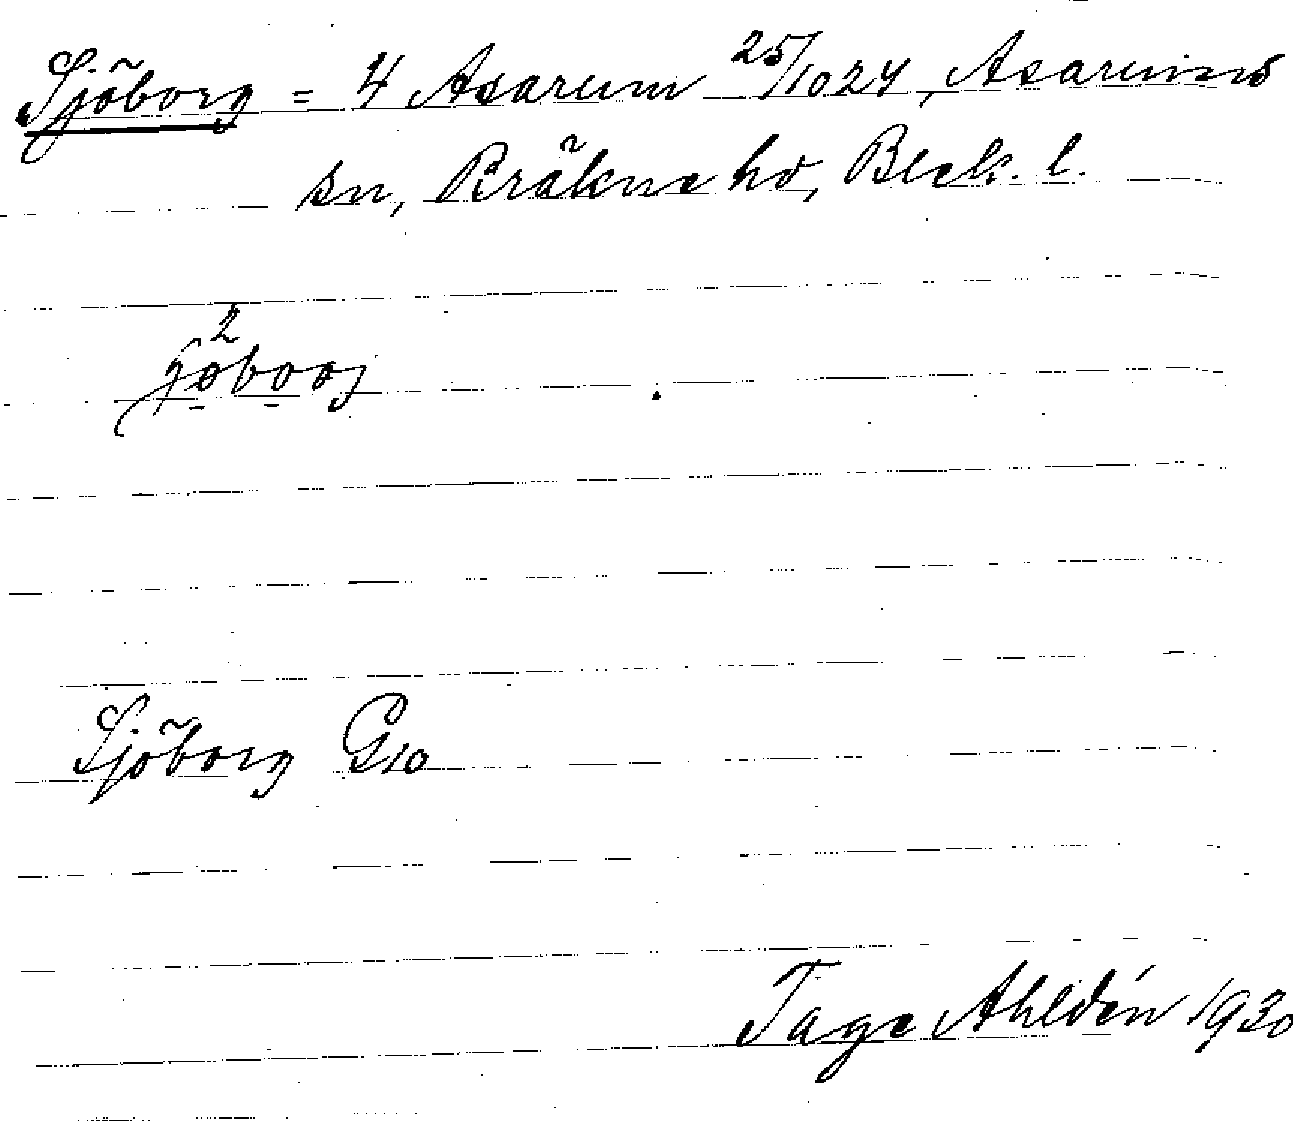 Sjöborg = 4 Asarum 25/10 24, Asarums
sn, Bräkne hd, Blek. l.
Sjöborg G10
Tage Ahldén 1930